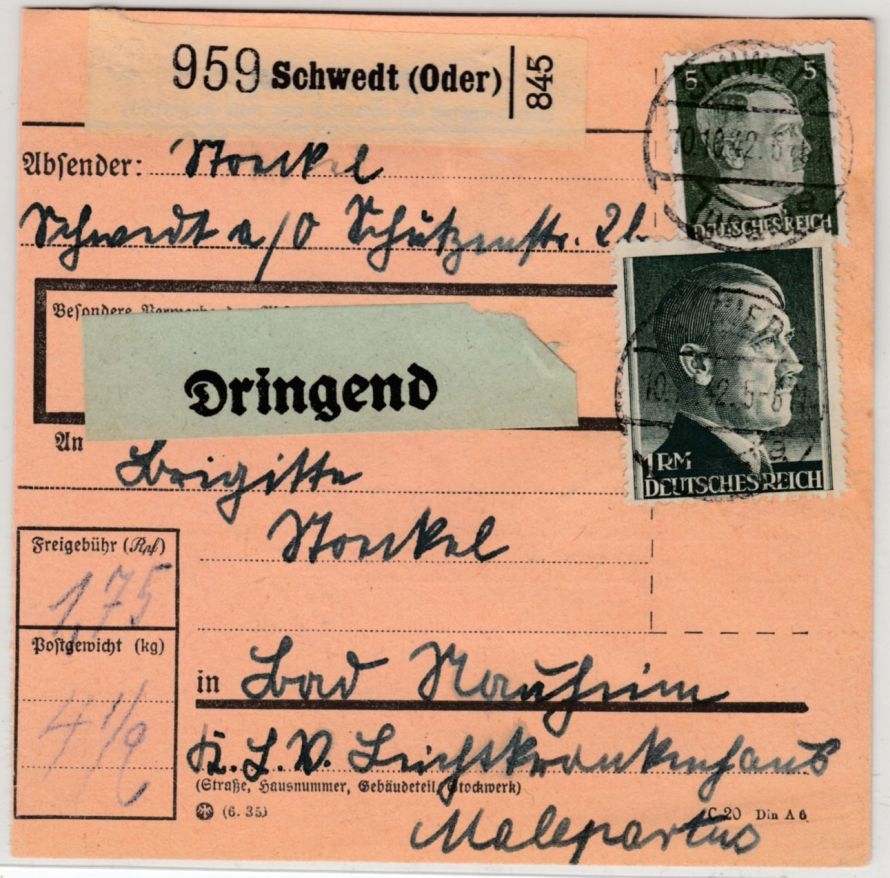 959 Schwedt (Oder) 845
5 5
SCHWEDT
10.10.42.
DEUTSCHES REICH
Absender: Stoekel
Schwedt a/O Schützenstr. 2b.
Besondere
Dringend
10. 42. 5-6
1RM
DEUTSCHES REICH
An
Brigitte
Stoekel
Freigebühr (Rpf)
1,75
Postgewicht (kg)
4 1/2
in Bad Nauheim
K. L. V. Leichtkrankenhaus
(Straße, Hausnummer, Gebäudeteil, Stockwerk)
(6. 35) C 20 Din A 6
Malepartus